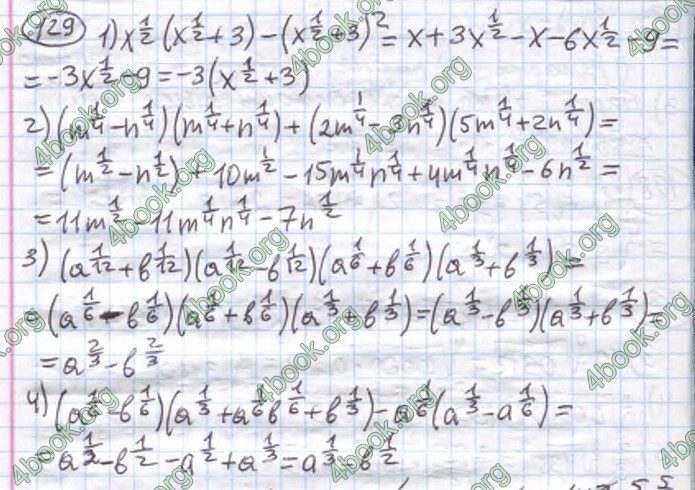 129 1) x^{1/2}(x^{1/2}+3)-(x^{1/2}+3)^2=x+3x^{1/2}-x-6x^{1/2}-9=
=-3x^{1/2}-9=-3(x^{1/2}+3)
2) (m^{1/4}-n^{1/4})(m^{1/4}+n^{1/4})+(2m^{1/4}-3n^{1/4})(5m^{1/4}+2n^{1/4})=
=(m^{1/2}-n^{1/2})+10m^{1/2}-15m^{1/4}n^{1/4}+4m^{1/4}n^{1/4}-6n^{1/2}=
=11m^{1/2}-11m^{1/4}n^{1/4}-7n^{1/2}
3) (a^{1/12}+b^{1/12})(a^{1/12}-b^{1/12})(a^{1/6}+b^{1/6})(a^{1/3}+b^{1/3})=
=(a^{1/6}-b^{1/6})(a^{1/6}+b^{1/6})(a^{1/3}+b^{1/3})=(a^{1/3}-b^{1/3})(a^{1/3}+b^{1/3})=
=a^{2/3}-b^{2/3}
4) (a^{1/6}-b^{1/6})(a^{1/3}+a^{1/6}b^{1/6}+b^{1/3})-a^{1/6}(a^{1/3}-a^{1/6})=
=a^{1/2}-b^{1/2}-a^{1/2}+a^{1/3}=a^{1/3}-b^{1/2}
4book.org